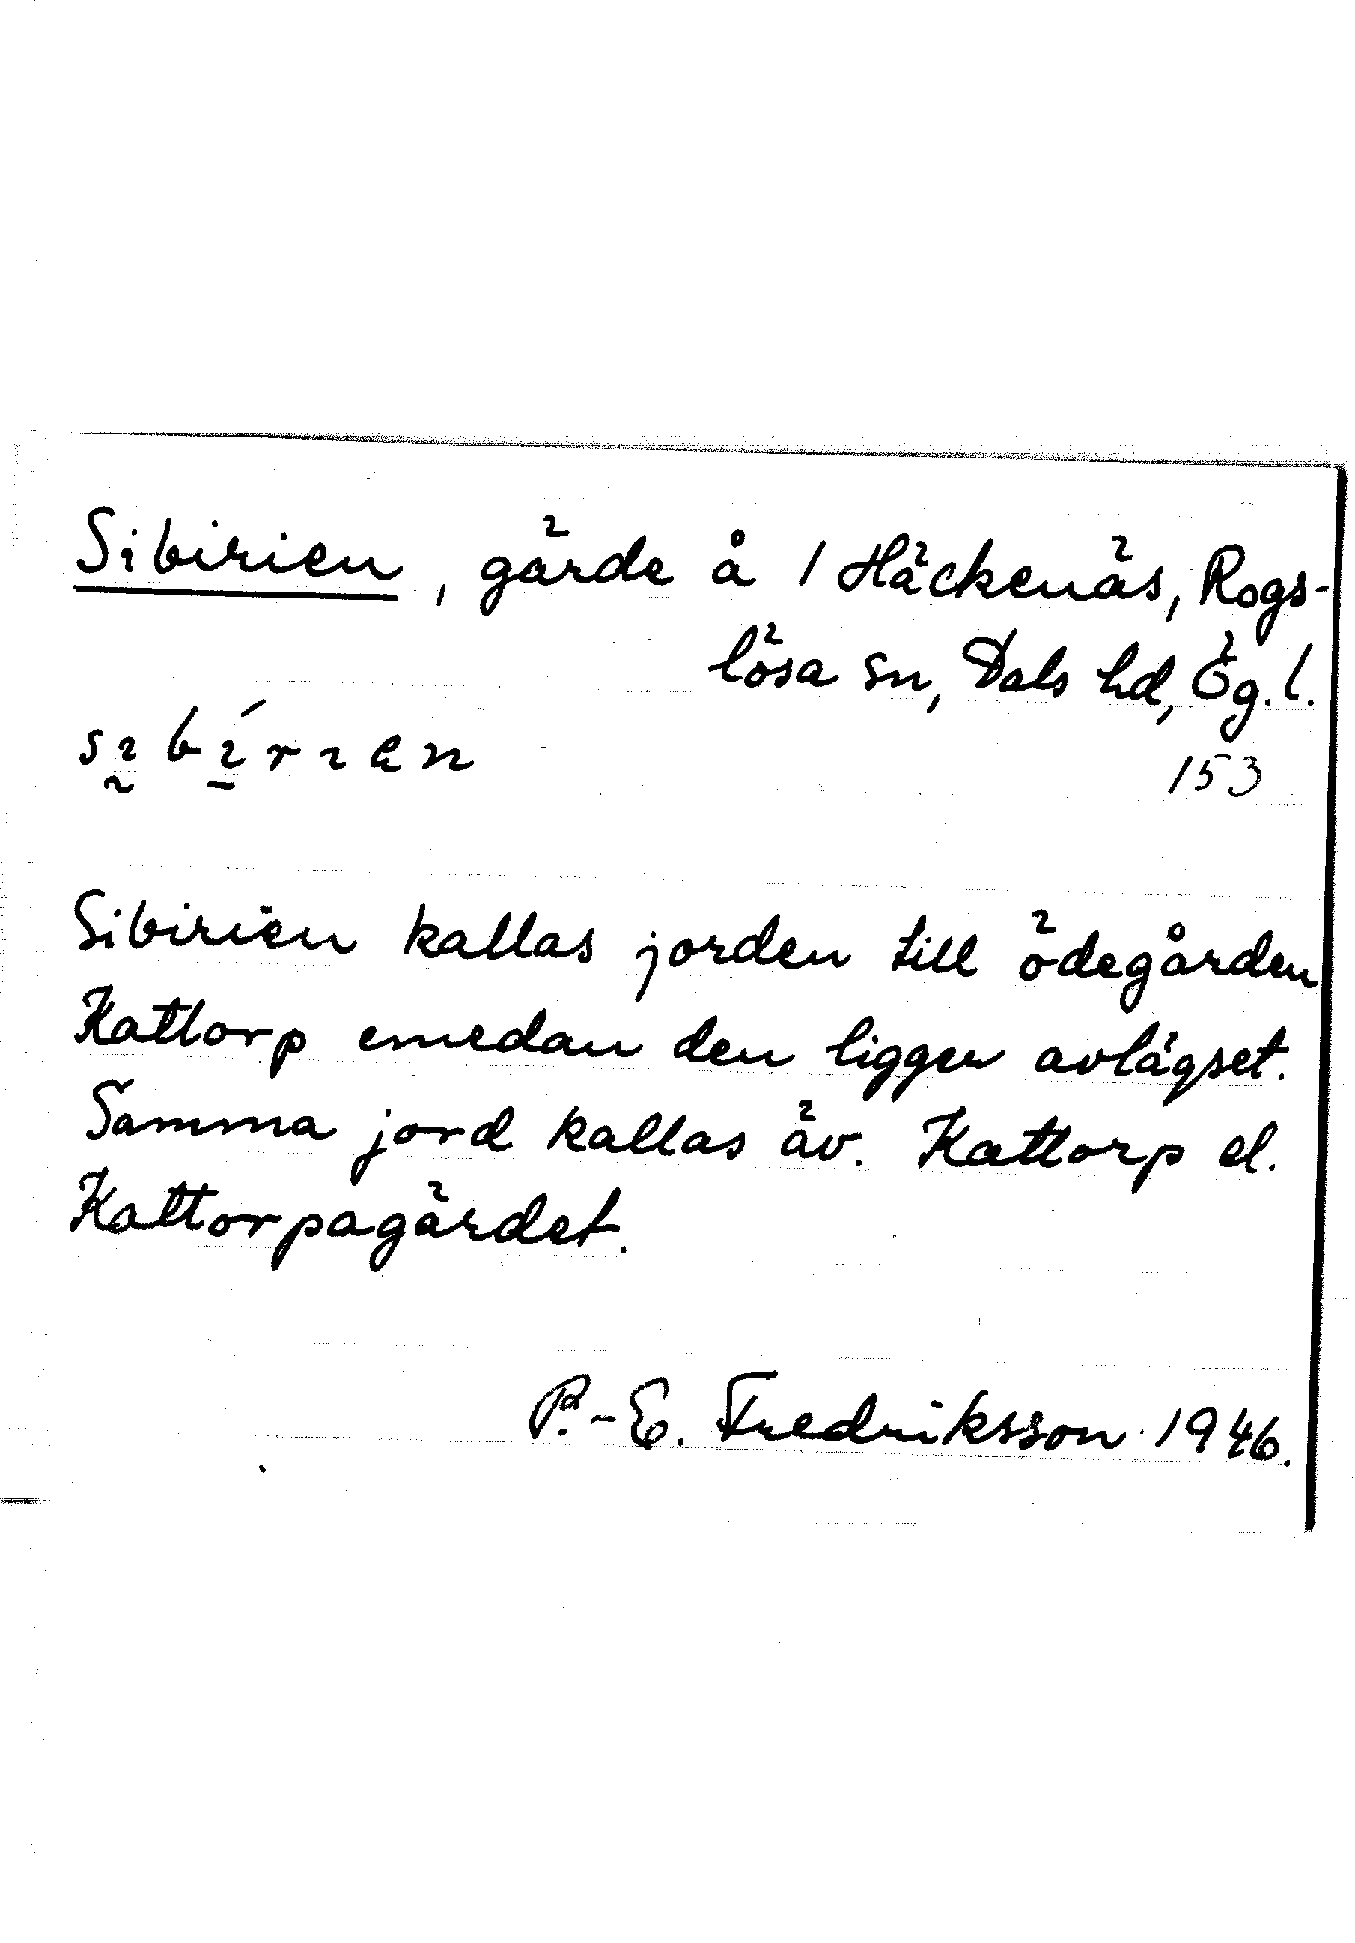 Sibirien, gärde å 1 Häckenäs, Rogs-
lösa sn, Dals hd, Ög.l.
sı̰bı̲́rıen
153
Sibirien kallas jorden till ödegården
Kattorp emedan den ligger avlägset.
Samma jord kallas äv. Kattorp el.
Kattorpagärdet.
P.-E. Fredriksson 1946.